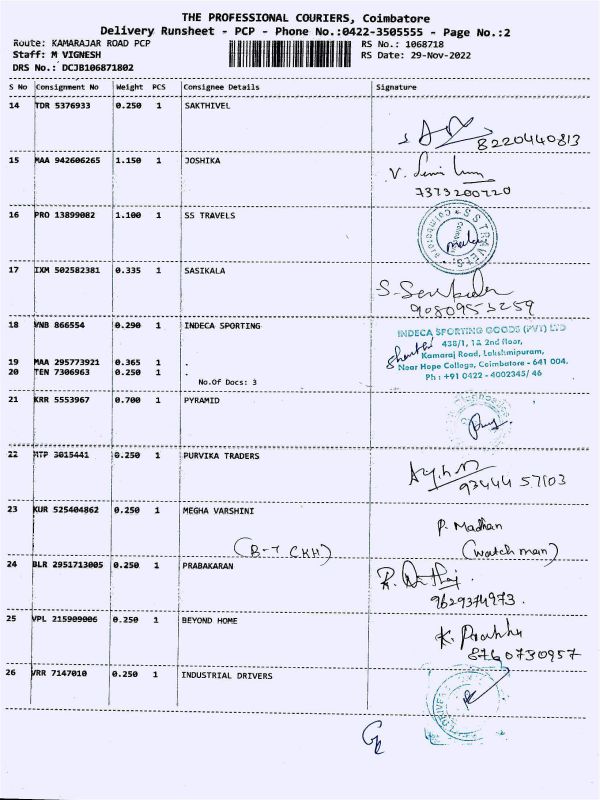 THE PROFESSIONAL COURIERS, Coimbatore
Delivery Runsheet - PCP - Phone No.:0422-3505555 - Page No.:2
Route: KAMARAJAR ROAD PCP RS No.: 1068718
Staff: M VIGNESH RS Date: 29-Nov-2022
DRS No.: DCJB106871802
S No Consignment No Weight PCS Consignee Details Signature
14 TDR 5376933 0.250 1 SAKTHIVEL
8220440813
15 MAA 942606265 1.150 1 JOSHIKA
V.
7373200720
16 PRO 13899082 1.100 1 SS TRAVELS
S S TRAVELS
17 IXM 502582381 0.335 1 SASIKALA
9080953259
18 VNB 866554 0.290 1 INDECA SPORTING
INDECA SPORTING GOODS (PVT) LTD
438/1, 1A 2nd floor,
Kamaraj Road, Lakshmipuram,
Near Hope College, Coimbatore - 641 004.
Ph : +91 0422 - 4002345/ 46
19 MAA 295773921 0.365 1 .
20 TEN 7306963 0.250 1 .
No.Of Docs: 3
21 KRR 5553967 0.700 1 PYRAMID
22 ATP 3015441 0.250 1 PURVIKA TRADERS
93444 57103
23 KUR 525404862 0.250 1 MEGHA VARSHINI
P. Madhan
(B-7 CKH) (watch man)
24 BLR 2951713005 0.250 1 PRABAKARAN
9629374973.
25 VPL 215909006 0.250 1 BEYOND HOME
K. Prabhu
8760730957
26 VRR 7147010 0.250 1 INDUSTRIAL DRIVERS